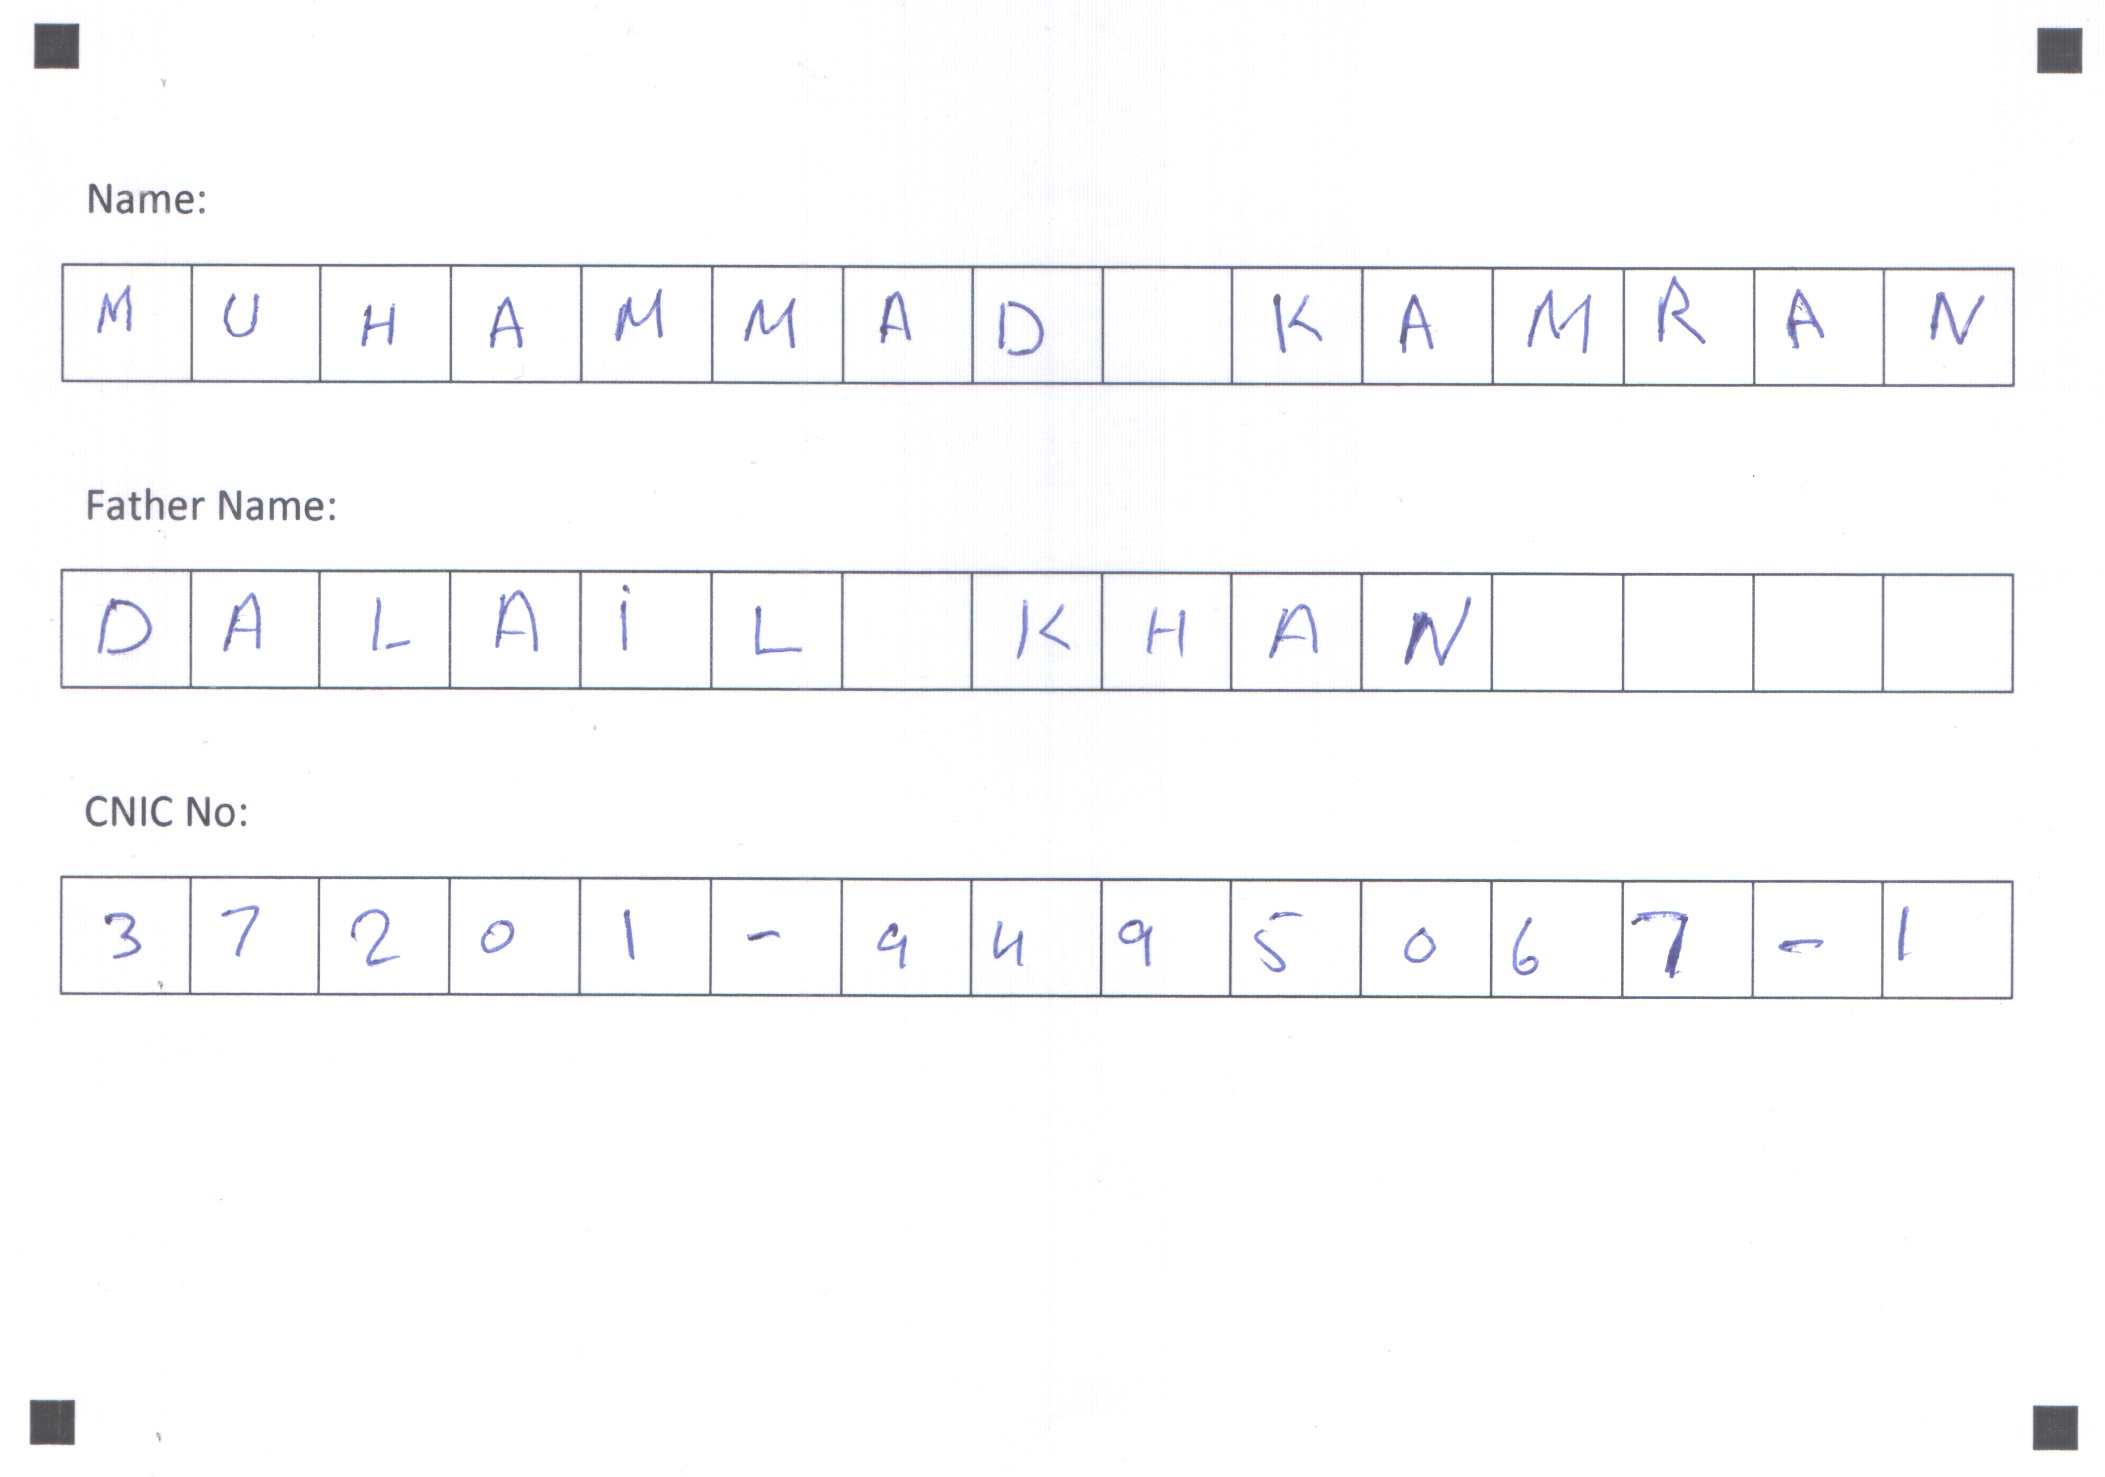 Name:
MUHAMMAD KAMRAN
Father Name:
DALAiL KHAN
CNIC No:
37201-9495067-1